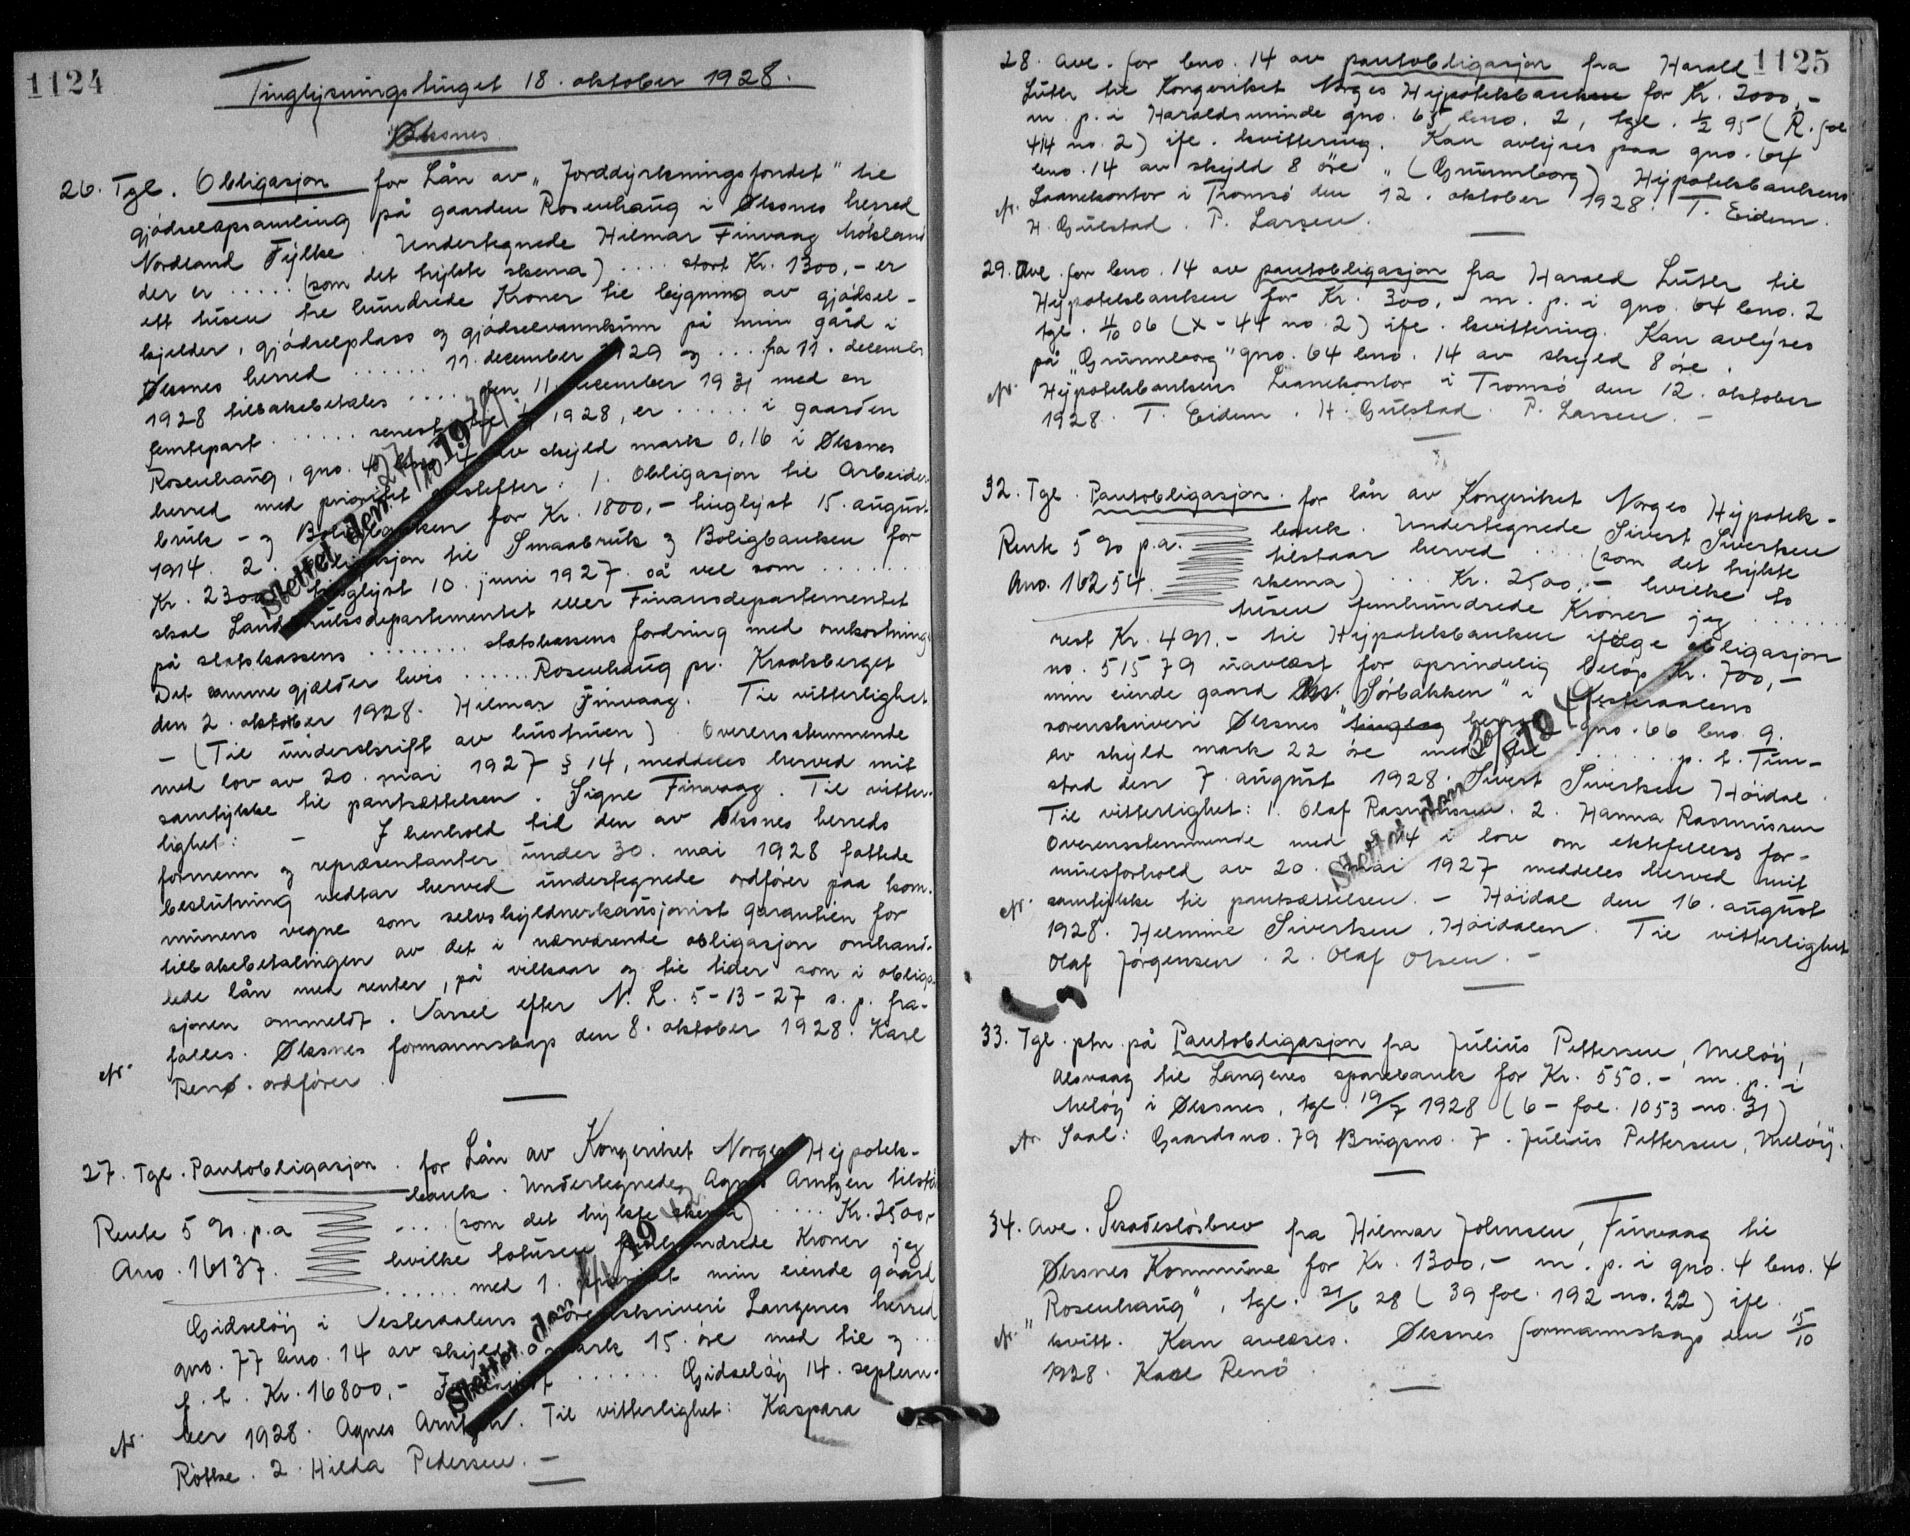 1124
Tinglysningstinget 18. oktober 1928.
Øksnes
26. Tgl. Obligasjon for Lån av „Jorddyrkningsfondet" til
gjödselopsamling på gaarden Rosenhaug i Øksnes herred
Nordland Fylke. Undertegnede Hilmar Finvaag
der er ..... (som det trykte skema) .... stort Kr. 1300,- er
ett tusen tre hundrede Kroner til bygning av gjödsel-
kjelder, gjödselplass og gjödselvannkum på min gård i
Øksnes herred ...... 11. december 1929 og ... fra 11. december
1928 tilbakebetales .... den 11. december 1931 med en
femtepart ...... senest 1928, er ..... i gaarden
Rosenhaug, gno. 4 bno. 4 av skyld mark 0,16 i Øksnes
herred med prioritet efter: 1. Obligasjon til Arbeider
bruk - og Boligbanken for Kr. 1800,- tinglyst 15. august
1914. 2. Obligasjon til Smaabruk og Boligbanken for
Kr. 2300 tinglyst 10. juni 1927. så vel som .......
skal Landbruksdepartementet eller Finansdepartementet
på statskassens ........ statskassens fordring med omkostninger
Det samme gjælder hvis ...... Rosenhaug pr. Kraakberget
den 2. oktober 1928. Hilmar Finvaag. Til vitterlighet
- (Til underskrift av hustruen). Overensstemmende
med lov av 20. mai 1927 § 14, meddeles herved mit
samtykke til pantsættelsen. Signe Finvaag. Til vitter-
lighet: - I henhold til den av Øksnes herreds
formenn og repræsentanter under 30. mai 1928 fattede
beslutning vedtar herved undertegnede ordförer paa kom-
munens vegne som selvskyldnerkausjonist garantien for
tilbakebetalingen av det i nærværende obligasjon omhand-
lede lån med renter, på vilkaar og til tider som i obliga-
sjonen ommeldt. Varsel efter N. L. 5-13-27 s. p. fra-
falles. Øksnes formannskap den 8. oktober 1928. Karl
Renø. ordförer.
Slettet den 27/10 19
27. Tgl. Pantobligasjon. for Lån av Kongeriket Norges Hypotek-
bank. Undertegnede Agnes Arntzen tilstår
Rente 5 % p.a
.... (som det trykte skema) .... Kr. 2500,-
Ano. 16137.
hvilke totusen femhundrede Kroner jeg
...... med 1. prioritet min eiende gaard
Gidselöy i Vesteraalens sorenskriveri Langenes herred
gno. 77 bno. 14 av skyld 0 mark 15 öre med til og ...
f. t. Kr. 16800,- ...... Gidselöy 14. septem-
ber 1928. Agnes Arntzen. Til vitterlighet: Kaspara
Röttke. 2. Hilda Pedersen. -
Slettet den 19
1125
28. Avl. for bno. 14 av pantobligasjon fra Harald
Luth til Kongeriket Norges Hypotekbanken for Kr. 2000,-
m. p. i Haraldsminde gno. 65 bno. 2, tgl. 1/2 95 (R. fol
414 no. 2) ifl. kvittering. Kan avlyses paa gno. 64
bno. 14 av skyld 8 öre „(Grünnborg) Hypotekbankens
Laanekontor i Tromsö den 12. oktober 1928. T. Eidem.
H. Gulstad. P. Larsen.
29. Avl. for bno. 14 av pantobligasjon fra Harald Luth til
Hypotekbanken for Kr. 300,- m. p. i gno. 64 bno. 2
tgl. 4/10 06 (X - 44 no. 2) ifl. kvittering. Kan avlyses
på „Grünnborg" gno. 64 bno. 14 av skyld 8 öre.
Hypotekbankens Laanekontor i Tromsö den 12. oktober
1928. T. Eidem. H. Gulstad. P. Larsen. -
32. Tgl. Pantobligasjon. for lån av Kongeriket Norges Hypotek-
bank. Undertegnede Sivert Sivertsen
Rente 5 % p.a.
tilstaar herved ... (som det trykte
Ano. 16254.
skema) ... Kr. 2500,- hvilke to
tusen femhundrede Kroner jeg .......
rest Kr. 491.- til Hypotekbanken ifölge obligasjon
no. 51579 uavlæst for oprindelig belöp Kr. 700,-
min eiende gaard „Sörbakken" i Vesteraalens
sorenskriveri Øksnes tinglag herred gno. 66 bno. 9.
av skyld mark 22 öre med til ...... p. t. Tun-
stad den 7. august 1928. Sivert Sivertsen Höidal.
Til vitterlighet: 1. Olaf Rasmussen. 2. Hanna Rasmussen
Overensstemmende med § 14 i lov om ektefellers for-
muesforhold av 20. mai 1927 meddeles herved mit
samtykke til pantsættelsen. - Höidal den 16. august
1928. Helmine Sivertsen. Höidalen. Til vitterlighet
Olaf Jörgensen. 2. Olaf Olsen. -
Slettet den 30/ 19
33. Tgl. ptn. på Pantobligasjon fra Julius Pettersen, Melöy,
Alsvaag til Langenes sparebank for Kr. 550.- m. p. i
Melöy i Øksnes, tgl. 19/7 1928 (6 - fol. 1053 - no. 31)
Saal: Gaardsno. 79 Brugsno. 7. Julius Pettersen, Melöy.
34. Avl. Skadeslösbrev fra Hilmar Johnsen, Finvaag til
Øksnes Kommune for Kr. 1300,- m. p. i gno. 4 bno. 4
„Rosenhaug", tgl. 21/6 28 (39 fol. 192 no. 22) ifl.
kvitt. Kan avlæses. Øksnes formannskap den 15/10
1928. Karl Renö